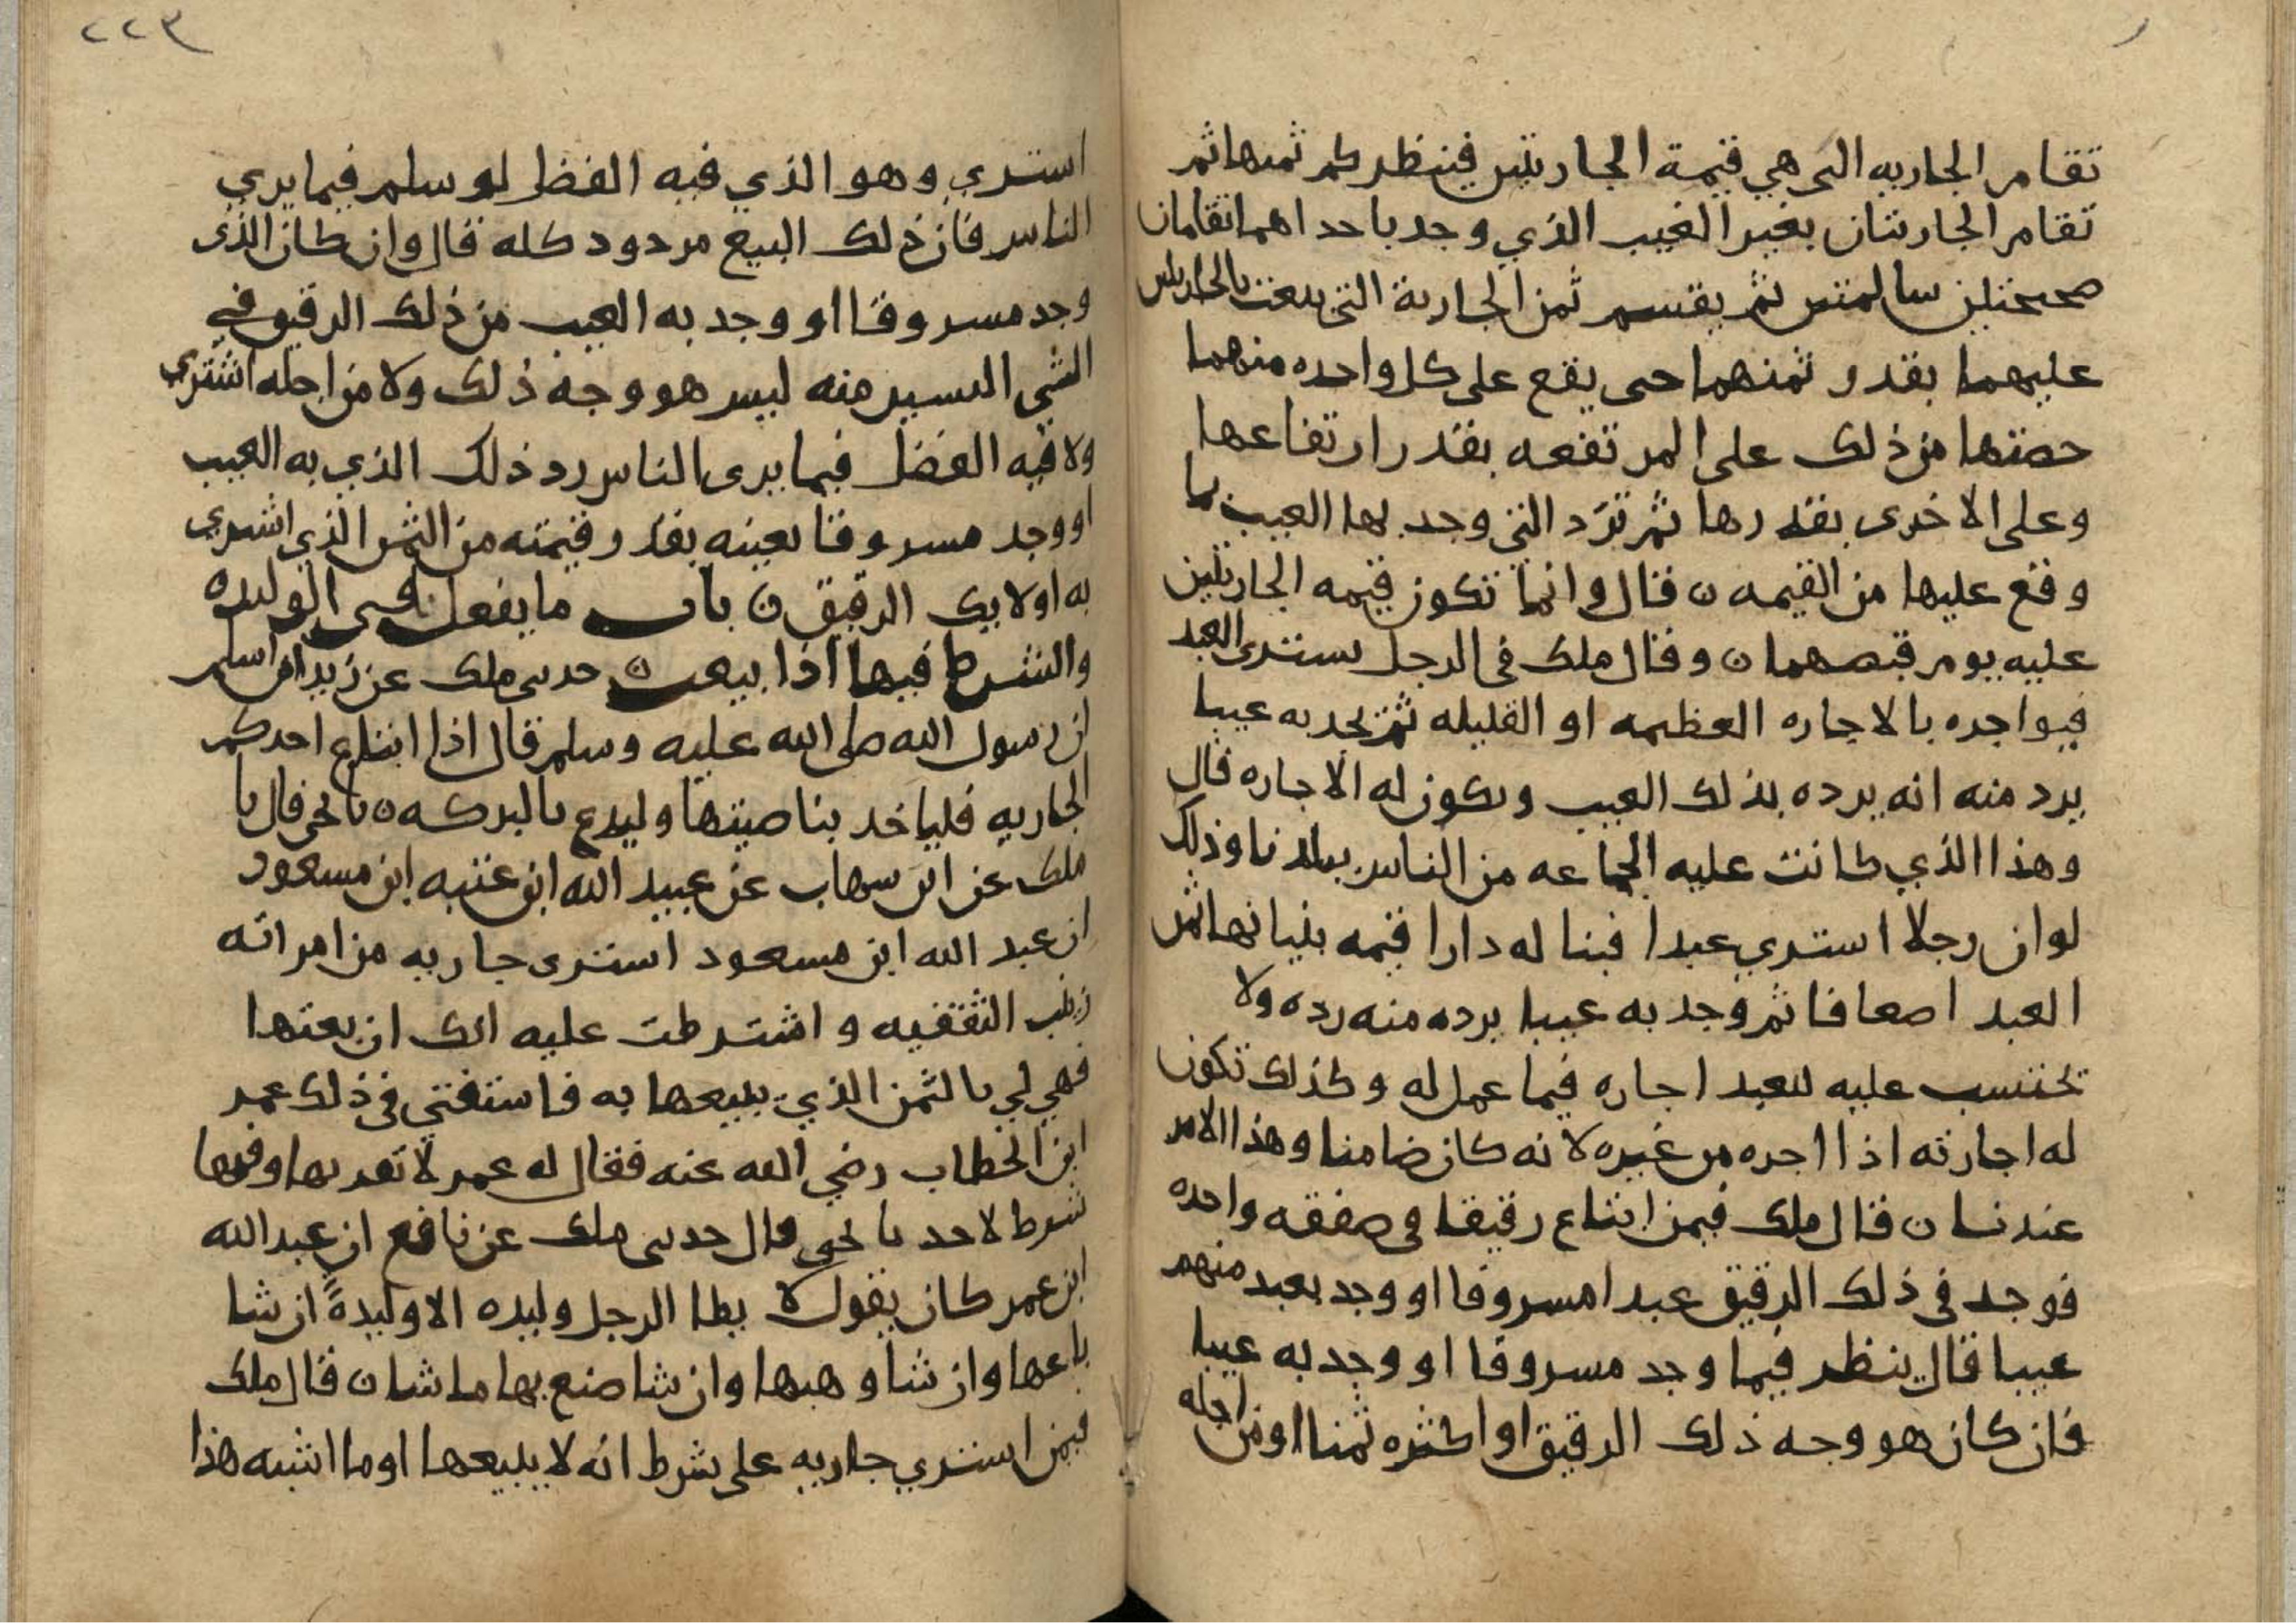 تقام الجاريه التي هي قيمة الجاريتين فينظر كم ثمنها ثم
تقام الجاريتان بغير العيب الذي وجد باحداهما تقامان
صحيحتين سالمتين ثم يقسم ثمن الجارية التي بيعت بالجاريتين
عليهما بقدر ثمنهما حتى يقع على كل واحده منهما
حصتها من ذلك على المرتفعه بقدر ارتفاعها
وعلى الاخرى بقدرها ثم ترد التي وجد بها العيب بما
وقع عليها من القيمه ن قال وانما تكون قيمه الجاريتين
عليه يوم قبضهما ن وقال ملك في الرجل يشترى العبد
فيواجره بالاجاره العظيمه او القليله ثم يجد به عيبا
يرد منه انه يرده بذلك العيب وتكون له الاجاره قال
وهذا الذي كانت عليه الجماعه من الناس ببلدنا وذلك
لو ان رجلا اشتري عبدا فبنا له دارا قيمه بنيانها ثمن
العبد اضعافا ثم وجد به عيبا يرده منه رده ولا
تحتسب عليه للعبد اجاره فيما عمل له وكذلك تكون
له اجارته اذا اجره من غيره لانه كان ضامنا وهذا الامر
عندنا ن قال ملك فيمن ابتاع رقيقا في صفقه واحده
فوجد في ذلك الرقيق عبدا مسروقا او وجد بعبد منهم
عيبا قال ينظر فيما وجد مسروقا او وجد به عيبا
فان كان هو وجه ذلك الرقيق او اكثره ثمنا او من اجله
٢٢٣
اشتري وهو الذي فيه الفضل لو سلم فيما يري
الناس فان ذلك البيع مردود كله قال وان كان الذى
وجد مسروقا او وجد به العيب من ذلك الرقيق في
الشي اليسير منه ليس هو وجه ذلك ولا من اجله اشتري
ولا فيه الفضل فيما يرى الناس رد ذلك الذي به العيب
او وجد مسروقا بعينه بقدر قيمته من الثمن الذي اشتري
به اولايك الرقيق ن باب ما يفعل في الوليده
والشرط فيها اذا بيعت ن حدثني ملك عن زيد ابن اسلم
ان رسول الله صلى الله عليه وسلم قال اذا ابتاع احدكم
الجاريه فلياخد بناصيتها وليدع بالبركه ن نا يحي قال نا
ملك عن ابن شهاب عن عبيد الله ابن عتبه ابن مسعود
ان عبد الله ابن مسعود اشترى جاريه من امراته
زينب الثقفيه واشترطت عليه انك ان بعتها
فهي لي بالثمن الذي يبيعها به فاستفتى في ذلك عمر
ابن الخطاب رضي الله عنه فقال له عمر لا تقربها وفيها
شرط لاحد نا يحي قال حدثني ملك عن نافع ان عبد الله
ابن عمر كان يقول لا يطا الرجل وليده الا وليدةً ان شا
باعها وان شا وهبها وان شا صنع بها ما شا ن قال ملك
فيمن اشتري جاريه على شرط انه لا يبيعها او ما اشبه هذا